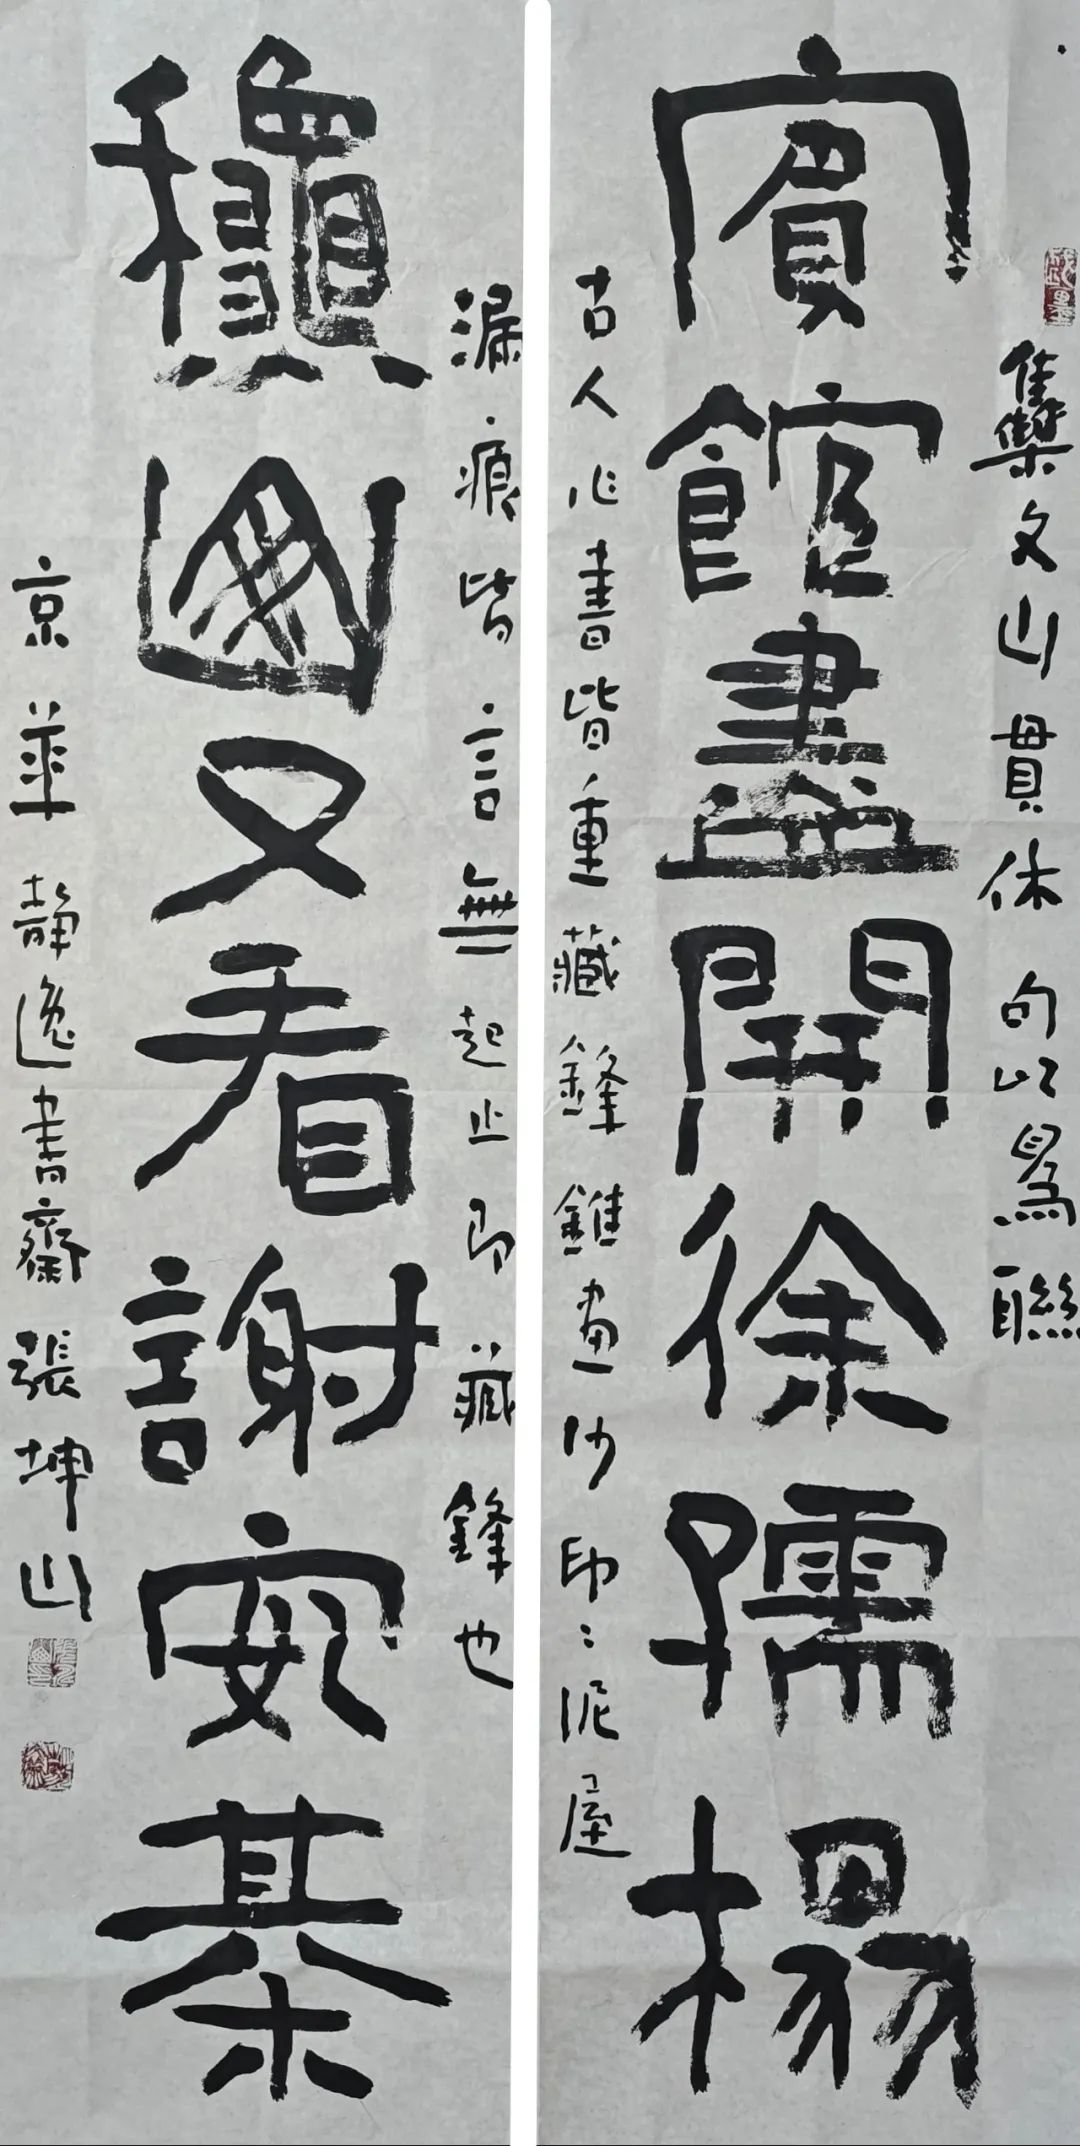 集文山貫休句以爲聯
賓館盡開徐孺榻
古人作書皆重藏鋒錐畫沙印〻泥屋
漏痕皆言無起止即藏鋒也
又看謝安棊
京華靜逸書齋張坤山